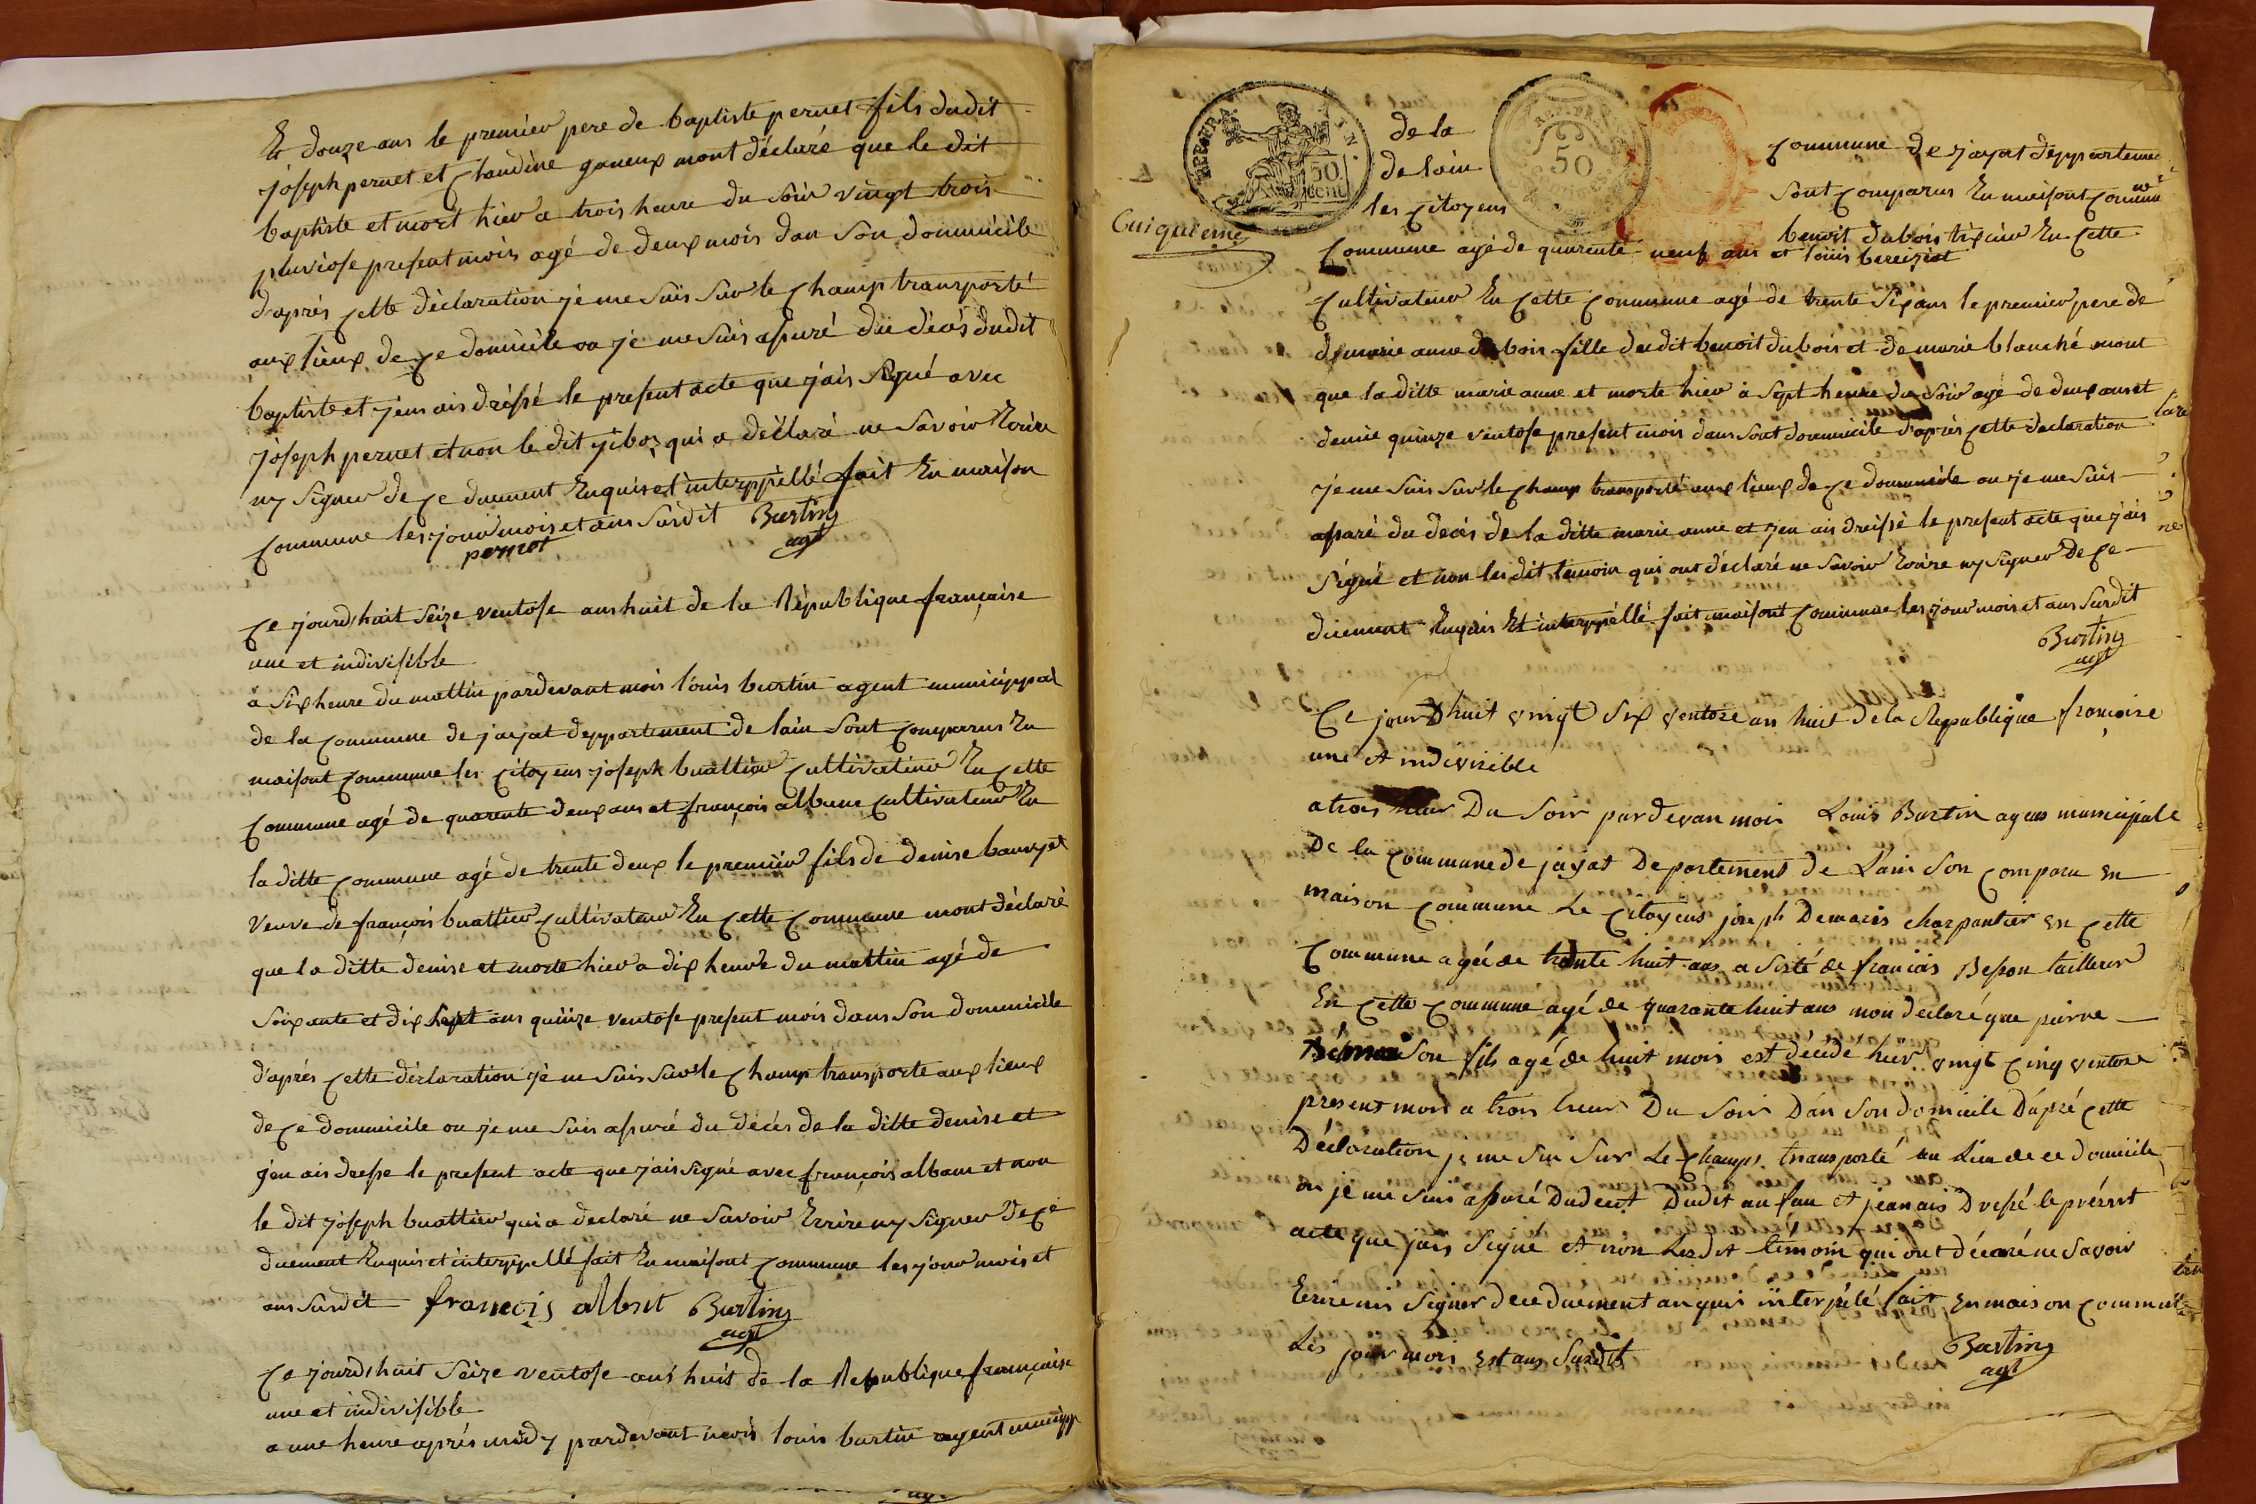 Et douze ans le premier pere de baptiste pernet fils dudit
joseph pernet et Claudine goneux mont déclaré que le dit
baptiste et mort hier a trois heure du soir vingt trois
pluviose present mois agé de deux mois dan son dommicile
d'aprés cette déclaration je me suis sur le champ transporté
aux lieux de ce domicile ou je me suis assuré du décès dudit
baptiste et j'en ais dréssé le present acte que j'ais signé avec
joseph pernet et non le dit qui a déclaré ne savoir Ecrire
ny signer de ce duement Enquis et interppéllé fait En maison
commune les jour mois et ans susdit Burtin
pernet agt
Ce jourd'huit seize ventose ans huit de la République française
une et indivisible
à six heure du mattin pardevant mois louis burtin agent municippal
de la commune de jayat deppartement de lain sont comparus En
maisont commune les citoyens joseph buattier cultivateur En cette
commune agé de quarente deux ans et françois albans cultivateur En
la ditte commune agé de trente deux le premier fils de denise
veuve de françois buattier cultivateur En cette commune mont déclaré
que la ditte denise et morte hier a dix heure du mattin agé de
soixante et dix sept ans quinze ventose present mois dans son dommicile
d'aprés cette déclaration je me suis sur le champ transporte aux lieux
de ce dommicile ou je me suis assuré du décés de la ditte denise et
j'en ais dresse le present acte que j'ais signé avec françois albans et non
le dit joseph buattier qui a declaré ne savoir Ecrire ny signer de ce
duement Enquis et interppellé fait En maisont commune les jour mois et
ans susdit françois albant Burtin
agt
Ce jourd'huit seize ventose ans huit de la Republique française
une et indivisible
a une heure aprés midy pardevant mois louis burtin agent municipp
REP. FRA. 50 cent
50
de la commune de jayat deppartement
de lain sont comparus En maisont commune
les citoyens benoit dubois tixier En cette
Cuiquieme
commune agé de quarente neuf ans et louis bereiziat
cultivateur En cette commune agé de trente six ans le premier pere de
de marie anne dubois fille dudit benoit dubois et de marie blanché mont
que la ditte marie anne et morte hier à sept heure du soir agé de deux ans et
demie quinze ventose present mois dans sont dommicile d'aprés cette declaration
je me suis sur le champ transporté aux lieux de ce dommicile ou je me suis
assuré du decés de la ditte marie anne et j'en ais dreissé le present acte que j'ais
signé et non les dit temoin qui ont déclaré ne savoir Ecrire ny signer de ce
duement Enquis Et interppéllé fait maisont commune les jour mois et ans susdit
Burtin
agt
Ce jourd'huit vingt six ventose an huit de la Republique françoise
une et indivisible
a trois heur Du soir pardevan mois Louis Burtin agens municipale
De la commune de jayat Departement de Lain son compara En
maison commune Le citoyens joseph Demaris charpantier En cette
commune agée de trente huit ans a sisté de francois Besson tailleur
En cette commune agé de quarante huit ans mon declaré que piérre
son fils agé de huit mois est décédé hier vingt cinq ventose
present mois a trois heur Du soir Dan son domicile D'apré cette
Déclaration je me sui sur Le champs transporté au Lieu de ce domicile
ou je me suis assuré Dudecet Dudit anfan et j'eanais Dressé le présent
acte que j'ais signé et non Lesdit témoin qui ont décaré ne savoir
Ecrire nis signer dece duement anquis interpélé fait En maison commune
Les jour mois Et ans susdit Burtin
agt